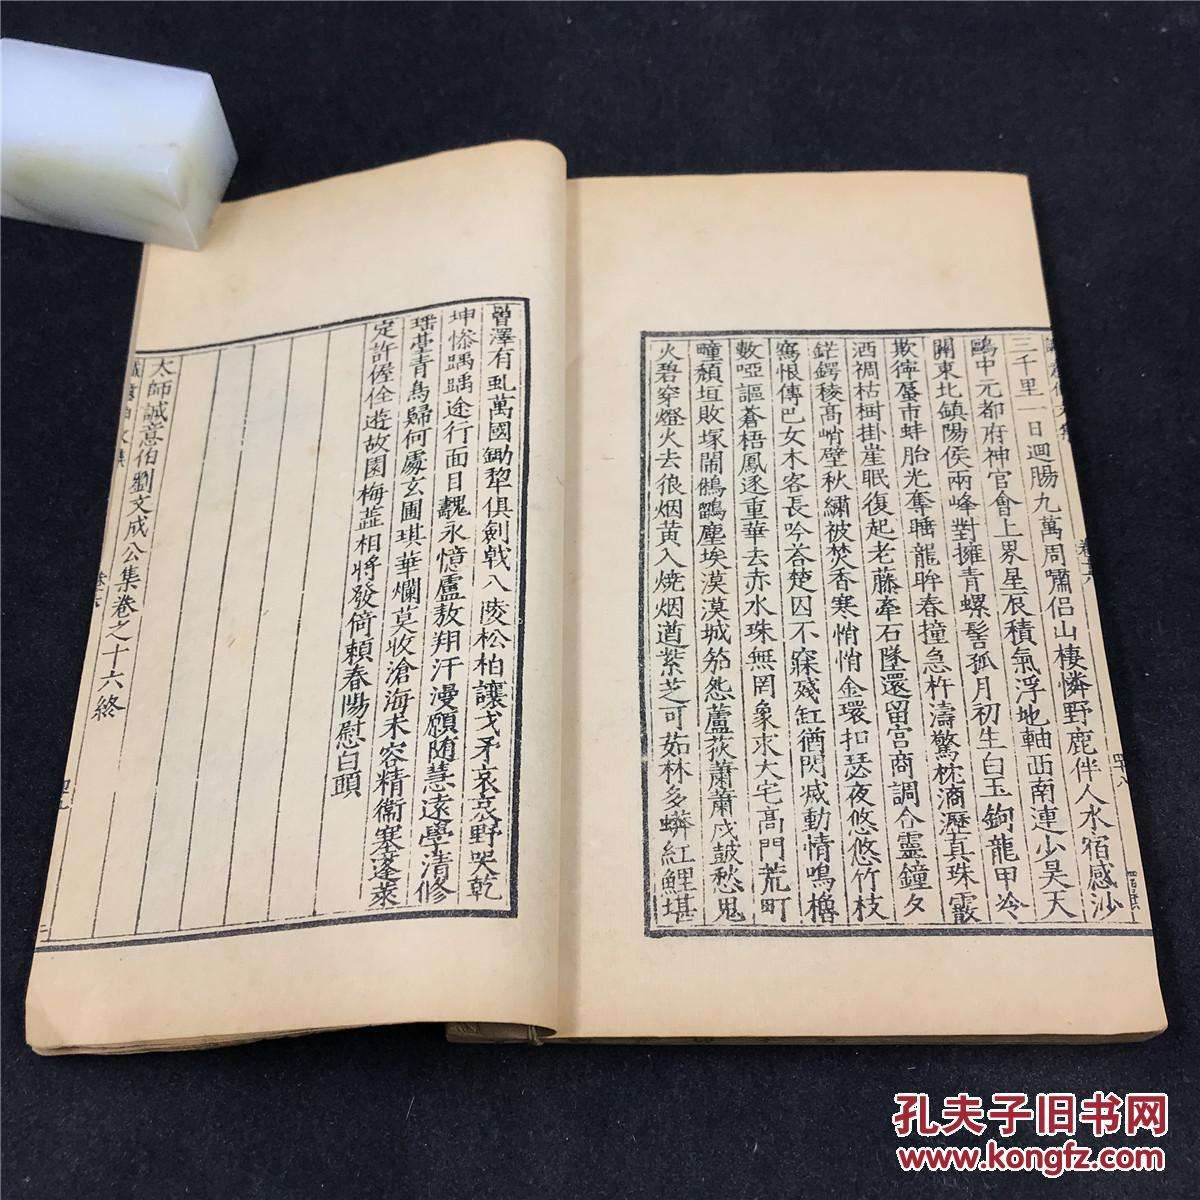 三千里一日迴腸九萬周嘯侶山棲憐野鹿伴人水宿感沙
鷗中元都府神官會上界星辰積氣浮地軸西南連少昊天
關東北鎮陽侯兩峰對擁青螺髻孤月初生白玉鉤龍甲冷
欺寧蜃市蚌胎光奪曙龍眸春撞急杵濤驚枕滴瀝真珠霰
洒裯枯樹掛崖眠復起老藤牽石墜還留宮商調合靈鐘夕
鋩鍔稜高峭壁秋繡被焚香寒悄悄金環扣瑟夜悠悠竹枝
寫恨傳巴女木客長吟答楚囚不寐殘缸猶閃滅動情鳴櫓
數啞謳蒼梧鳳逐重華去赤水珠無罔象求大宅高門荒町
疃頹垣敗塚鬧鵂鶹塵埃漠漠城笳怨蘆荻蕭蕭戍鼓愁鬼
火碧穿燈火去狼烟黄入燒烟遒紫芝可茹林多蠎紅鯉堪
曽澤有虬萬國鋤犁俱劍戟八陵松柏讓戈矛哀哀野哭乾
坤慘踽踽途行面目覿永憶盧敖翔汗漫願随慧遠學清修
瑶臺青鳥歸何處玄圃琪華爛莫收滄海未容精衛塞蓬萊
定許偓佺遊故園梅蕋相將發倚賴春陽慰白頭
太師誠意伯劉文成公集卷之十六終
孔夫子旧书网
www.kongfz.com